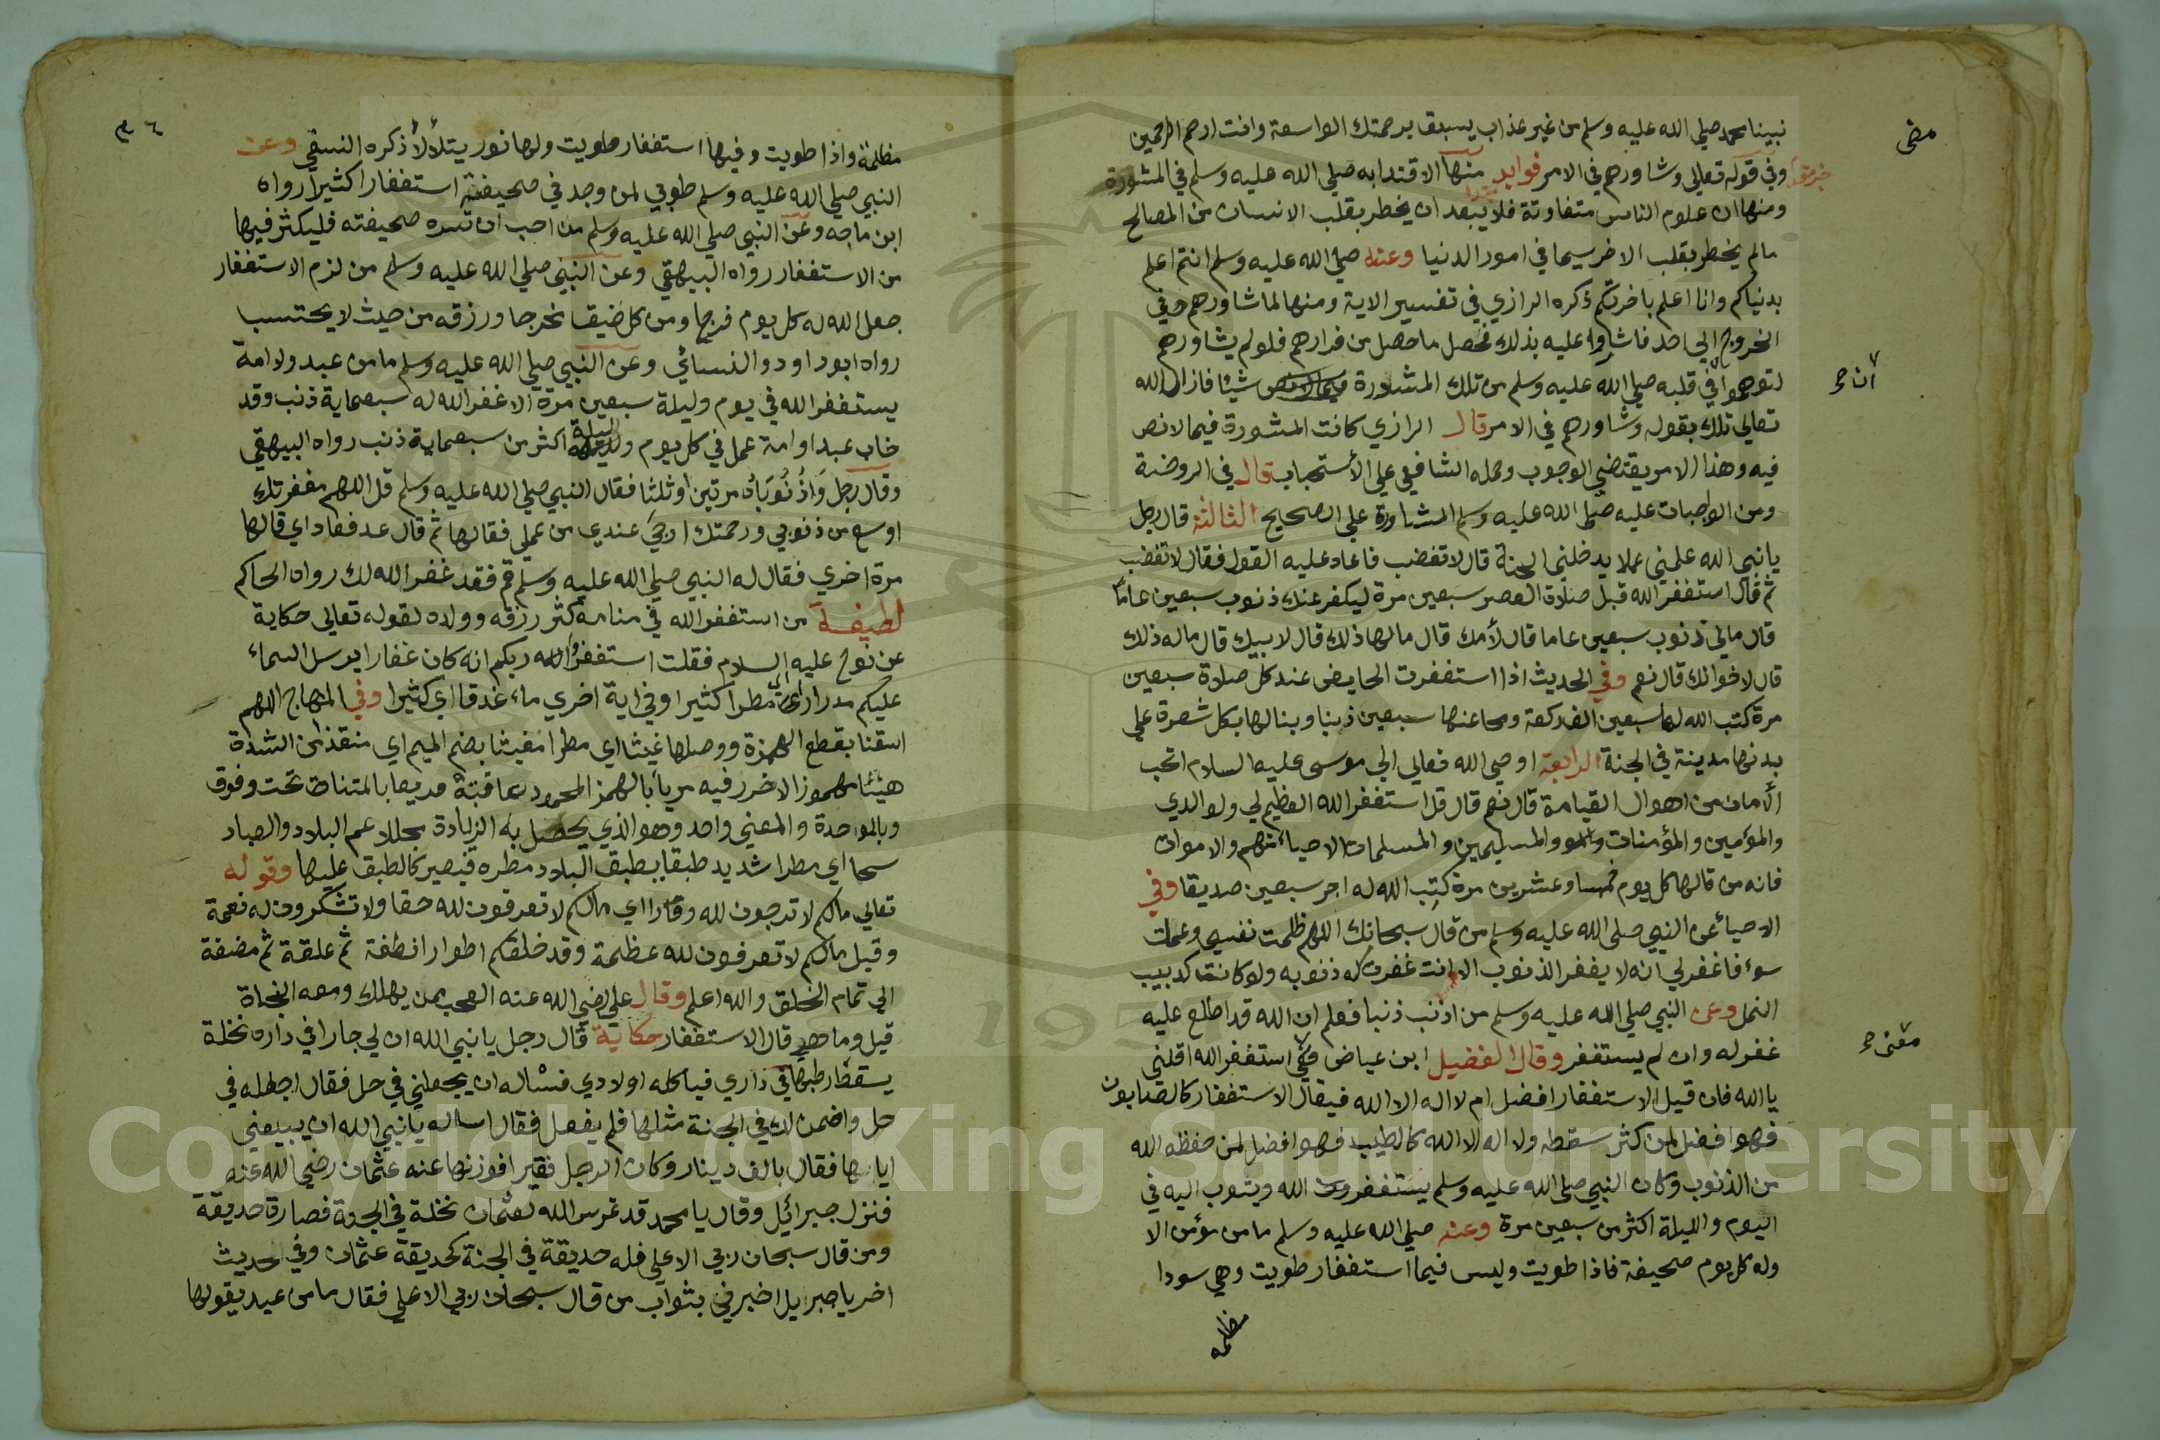 نبينا محمد صلي الله عليه وسلم من غير عذاب يسبق برحمتك الواسعة وانت ارحم الراحمين
وفي قوله تعالي وشاورهم في الامر فوايد منها الاقتدا به صلي الله عليه وسلم في المشورة
ومنها ان علوم الناس متفاوتة فلا يبعد ان يخطر بقلب الانسان من المصالح
مالم يخطر بقلب الاخر سيما في امور الدنيا وعنه صلي الله عليه وسلم انتم اعلم
بدنياكم وانا اعلم باخرتكم ذكره الرازي في تفسير الاية ومنها لما شاورهم في
الخروج الي احد فاشاروا عليه بذلك فحصل ما حصل من فرارهم فلو لم يشاورهم
لتوهموا في قلبه صلي الله عليه وسلم من تلك المشورة شيئا فازال الله
تعالي تلك بقوله وشاورهم في الامر قال الرازي كانت المشورة فيما لا نص
فيه وهذا الامر يقتضي الوجوب وحمله الشافعي علي الأستحباب قال في الروضة
ومن الواجبات عليه صلي الله عليه وسلم المشاورة علي الصحيح الثالثة قال رجل
يا نبي الله علمني عملا يدخلني الجنة قال لا تغضب فاعاد عليه القول فقال لا تغضب
ثم قال استغفر الله قبل صلاة العصر سبعين مرة ليكفر عنك ذنوب سبعين عاما
قال مالي ذنوب سبعين عاما قال لأمك قال مالها ذلك قال لابيك قال ماله ذلك
قال لاخوانك قال نعم وفي الحديث اذا استغفرت الحايض عند كل صلاة سبعين
مرة كتب الله لها سبعين الف ركعة ومحا عنها سبعين ذنبا وبنا لها بكل شعرة علي
بدنها مدينة في الجنة الرابعة اوحي الله تعالي الي موسي عليه السلام اتحب
الأمان من اهوال القيامة قال نعم قال قل استغفر الله العظيم لي ولوالدي
والمؤمنين والمؤمنات والمسلمين والمسلمات الاحياء منهم والاموات
فانه من قالها كل يوم خمسا وعشرين مرة كتب الله له اجر سبعين صديقا وفي
الاحيا عن النبي صلي الله عليه وسلم من قال سبحانك اللهم ظلمت نفسي وعملت
سوء فاغفر لي انه لا يغفر الذنوب الا انت غفرت له ذنوبه ولو كانت كدبيب
النمل وعن النبي صلي الله عليه وسلم من اذنب ذنبا فعلم ان الله قد اطلع عليه
غفر له وان لم يستغفر وقال الفضيل ابن عياض استغفر الله اقلني
يا الله فان قيل الاستغفار افضل ام لا اله الا الله فيقال الاستغفار كالصابون
فهو افضل لمن كثر سقطه ولا اله الا الله كالطيب فهو افضل لمن حفظه الله
من الذنوب وكان النبي صلي الله عليه وسلم يستغفر الله ويتوب اليه في
اليوم والليلة اكثر من سبعين مرة وعنه صلي الله عليه وسلم ما من مؤمن الا
وله كل يوم صحيفة فاذا طويت وليس فيها استغفار طويت وهي سودا
مظلمة
٣٦
مظلمة واذا طويت وفيها استغفار طويت ولها نور يتلألأ ذكره النسفي وعن
النبي صلي الله عليه وسلم طوبي لمن وجد في صحيفته استغفارا كثيرا رواه
ابن ماجه وعن النبي صلي الله عليه وسلم من احب ان تسره صحيفته فليكثر فيها
من الاستغفار رواه البيهقي وعن النبي صلي الله عليه وسلم من لزم الاستغفار
جعل الله له كل يوم فرجا ومن كل ضيق مخرجا ورزقه من حيث لا يحتسب
رواه ابو داود والنسائي وعن النبي صلي الله عليه وسلم ما من عبد ولا امة
يستغفر الله في يوم وليلة سبعين مرة الا غفر الله له سبعماية ذنب وقد
خاب عبد او امة عمل في كل يوم وليلة اكثر من سبعماية ذنب رواه البيهقي
وقال رجل واذنوباه مرتين او ثلثا فقال النبي صلي الله عليه وسلم قل اللهم مغفرتك
اوسع من ذنوبي ورحمتك ارجي عندي من عملي فقالها ثم قال عد فعاد اي قالها
مرة اخري فقال له النبي صلي الله عليه وسلم قم فقد غفر الله لك رواه الحاكم
لطيفة من استغفر الله في منامه كثر رزقه وولده لقوله تعالي حكاية
عن نوح عليه السلام فقلت استغفروا الله ربكم انه كان غفارا يرسل السماء
عليكم مدرارا اي مطرا كثيرا وفي اية اخري ماء غدقا اي كثيرا وفي المنهاج اللهم
اسقنا بقطع الهمزة ووصلها غيثا اي مطرا مغيثا بضم الميم اي منقذا من الشدة
هنيئا مهموز الاضرر فيه مريأ بالهمز المحمود عاقبته مريعا بالمتناة تحت وفوق
وبالموحدة والمعني واحد وهو الذي يحصل به الزيادة مجللا عم البلاد والعباد
سحا اي مطرا شديد طبقا يطبق البلاد مطره فيصير كالطبق عليها وقوله
تعالي مالكم لا ترجون لله وقارا اي مالكم لا تعرفون لله حقا ولا تشكرون له نعمة
وقيل مالكم لا تعرفون لله عظمة وقد خلقكم اطوارا نطفة ثم علقة ثم مضغة
الي تمام الخلق والله اعلم وقال علي رضي الله عنه العجب لمن يهلك ومعه النجاة
قيل وما هي قال الاستغفار حكاية قال رجل يا نبي الله ان لي جارا في داره نخلة
يسقط رطبها في داري فياكله اولادي فسأله ان يجعلني في حل فقال اجعله في
حل واضمن لك في الجنة مثلها فلم يفعل فقال اساله يا نبي الله ان يبيعني
اياها فقال بالف دينار وكان الرجل فقيرا فوزنها عنه عثمان رضي الله عنه
فنزل جبرائيل وقال يا محمد قد غرس الله لعثمان نخلة في الجنة فصارت حديقة
ومن قال سبحان ربي الاعلي فله حديقة في الجنة كحديقة عثمان وفي حديث
اخر يا جبريل اخبرني بثواب من قال سبحان ربي الاعلي فقال ما من عبد يقولها
Copyright © King Saud University